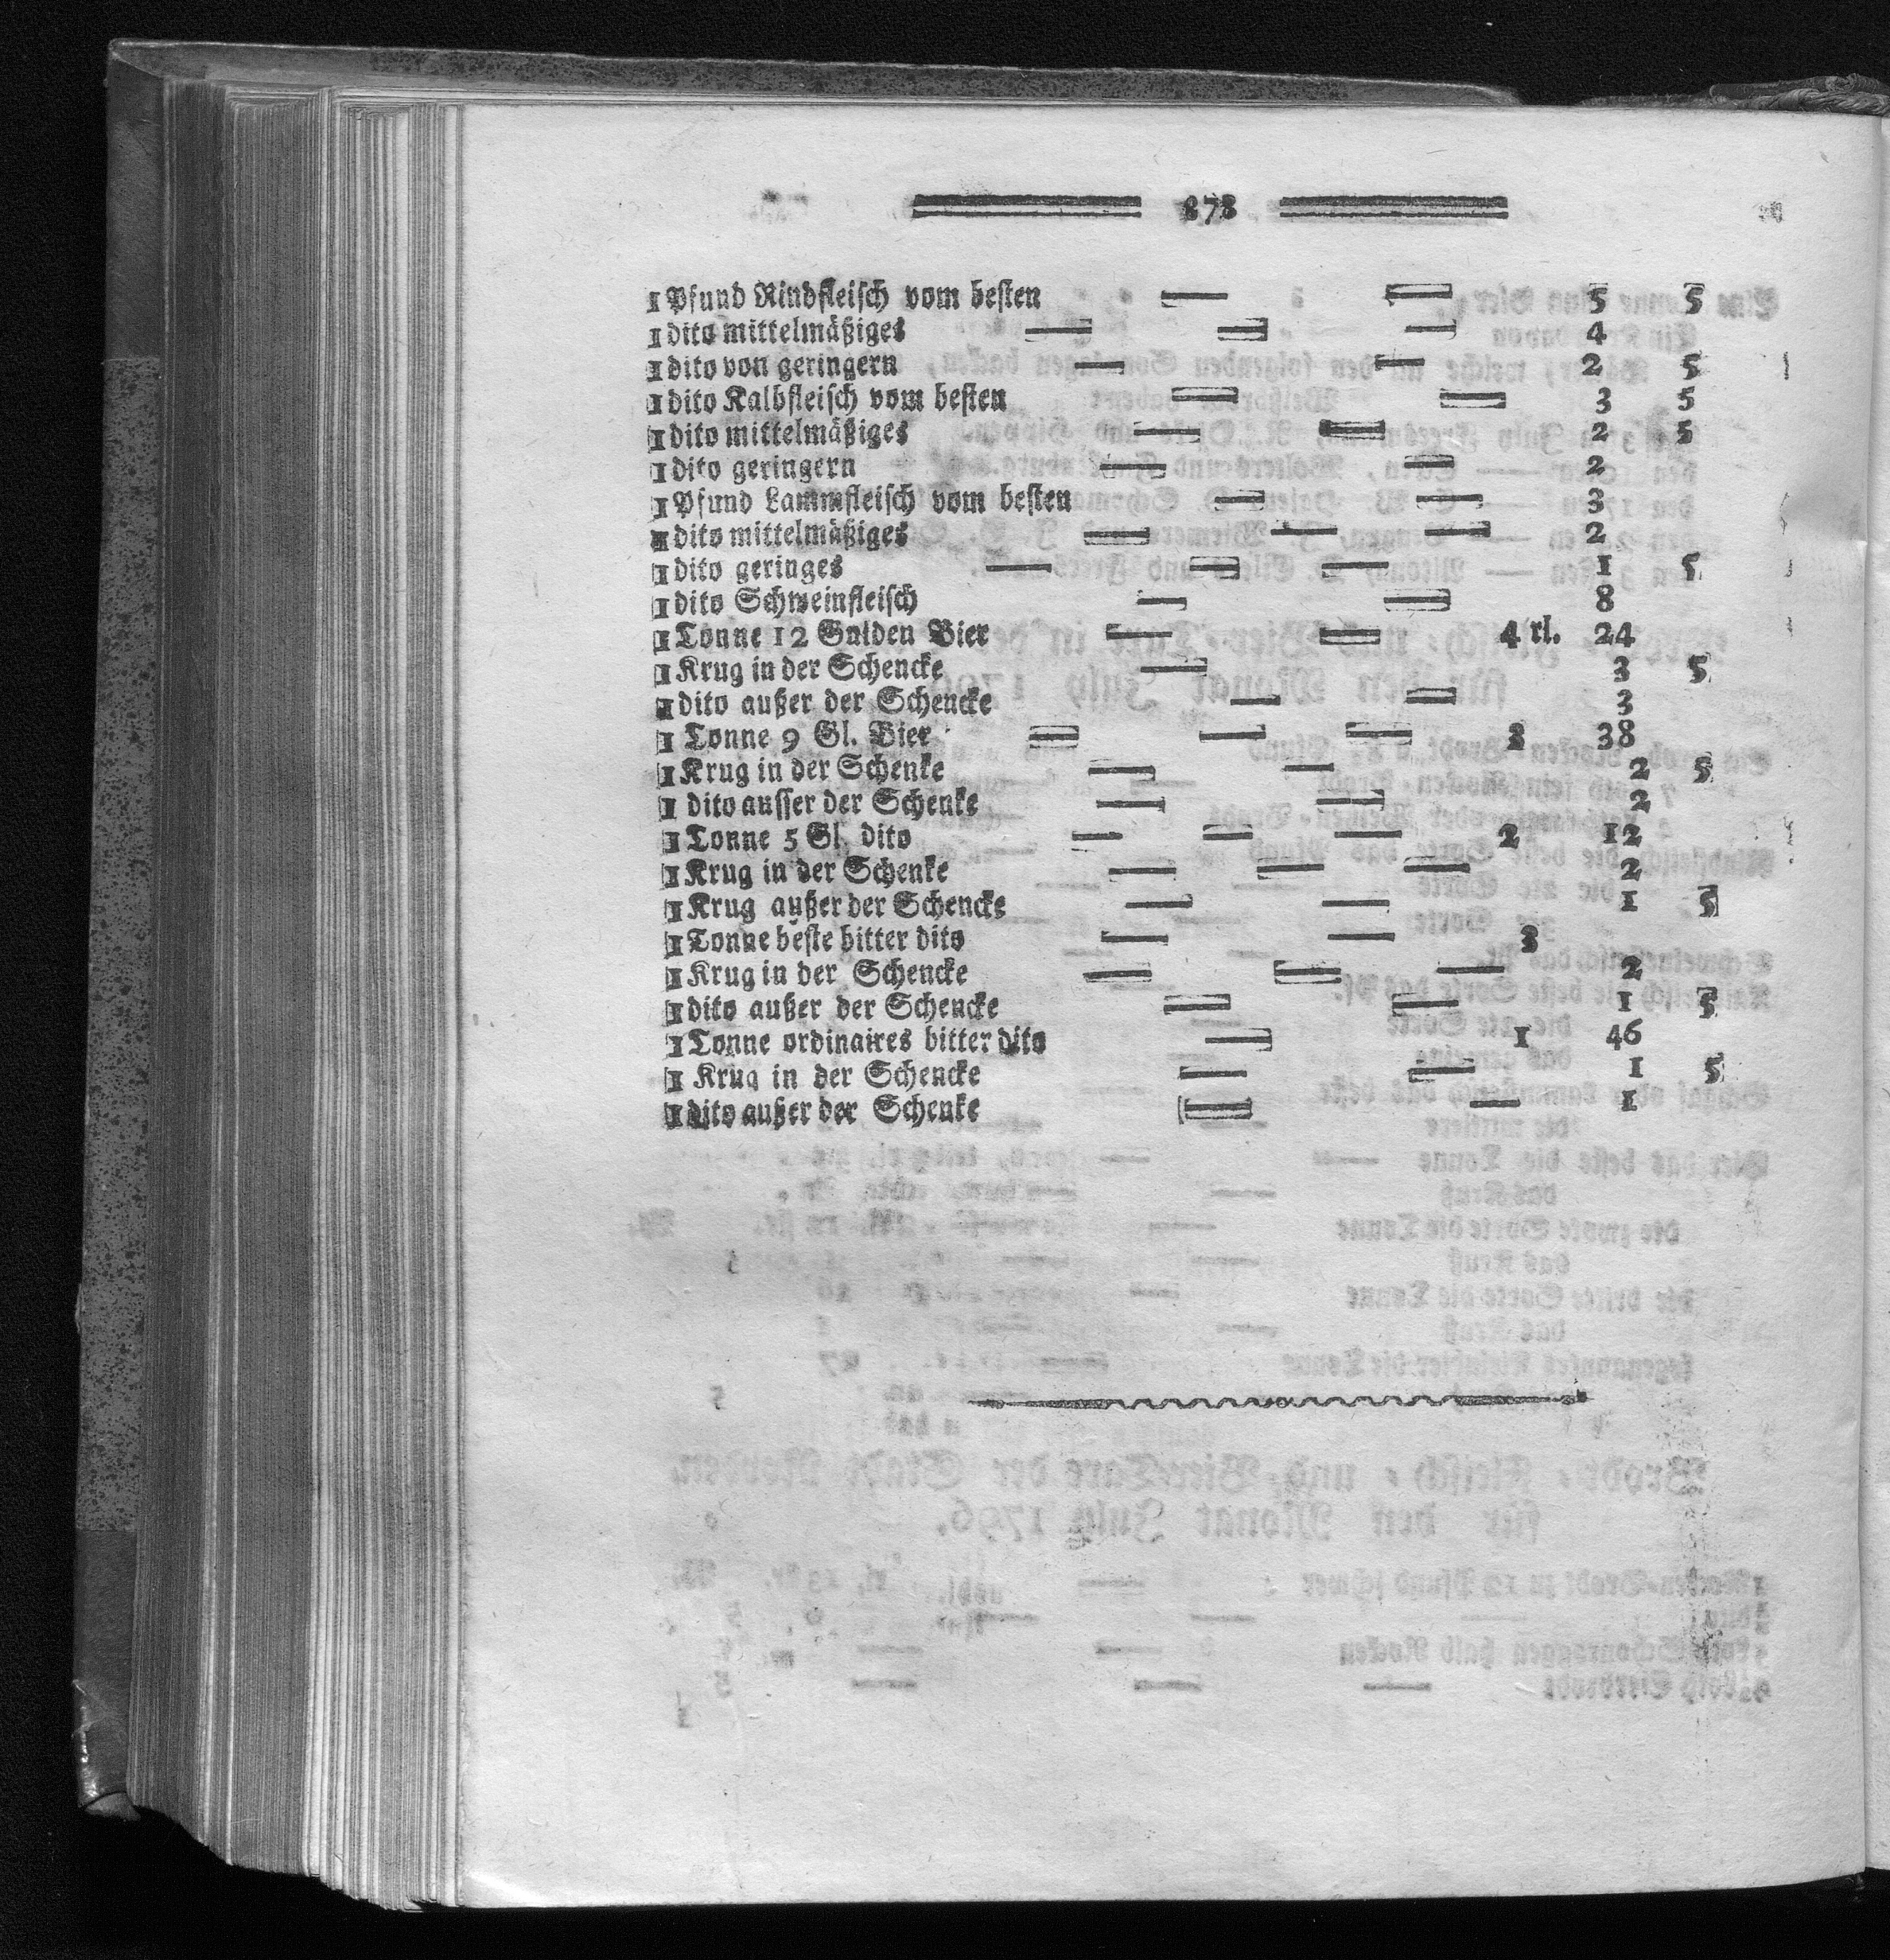 878
1 Pfund Rindfleisch vom besten — — 5 5
1 dito mittelmäßiges — — — 4
1 dito von geringern — — 2 5
1 dito Kalbfleisch vom besten — — 3 5
1 dito mittelmäßiges — — 2 5
1 dito geringern — — 2
1 Pfund Lammfleisch vom besten — — 3
1 dito mittelmäßiges — — — 2
1 dito geringes — — — 1 5
1 dito Schweinfleisch — — 8
1 Tonne 12 Gulden Bier — — 4 rl. 24
1 Krug in der Schencke — 3 5
1 dito außer der Schencke — — 3
1 Tonne 9 Gl. Bier — — — 3 38
1 Krug in der Schenke — — 2 5
1 dito ausser der Schenke — — 2
1 Tonne 5 Gl. dito — — — 2 12
1 Krug in der Schenke — — — 2
1 Krug außer der Schencke — — 1 5
1 Tonne beste bitter dito — — 3
1 Krug in der Schencke — — — 2
1 dito außer der Schencke — — 1 5
1 Tonne ordinaires bitter dito — 1 46
1 Krug in der Schencke — — 1 5
1 dito außer der Schenke — — 1